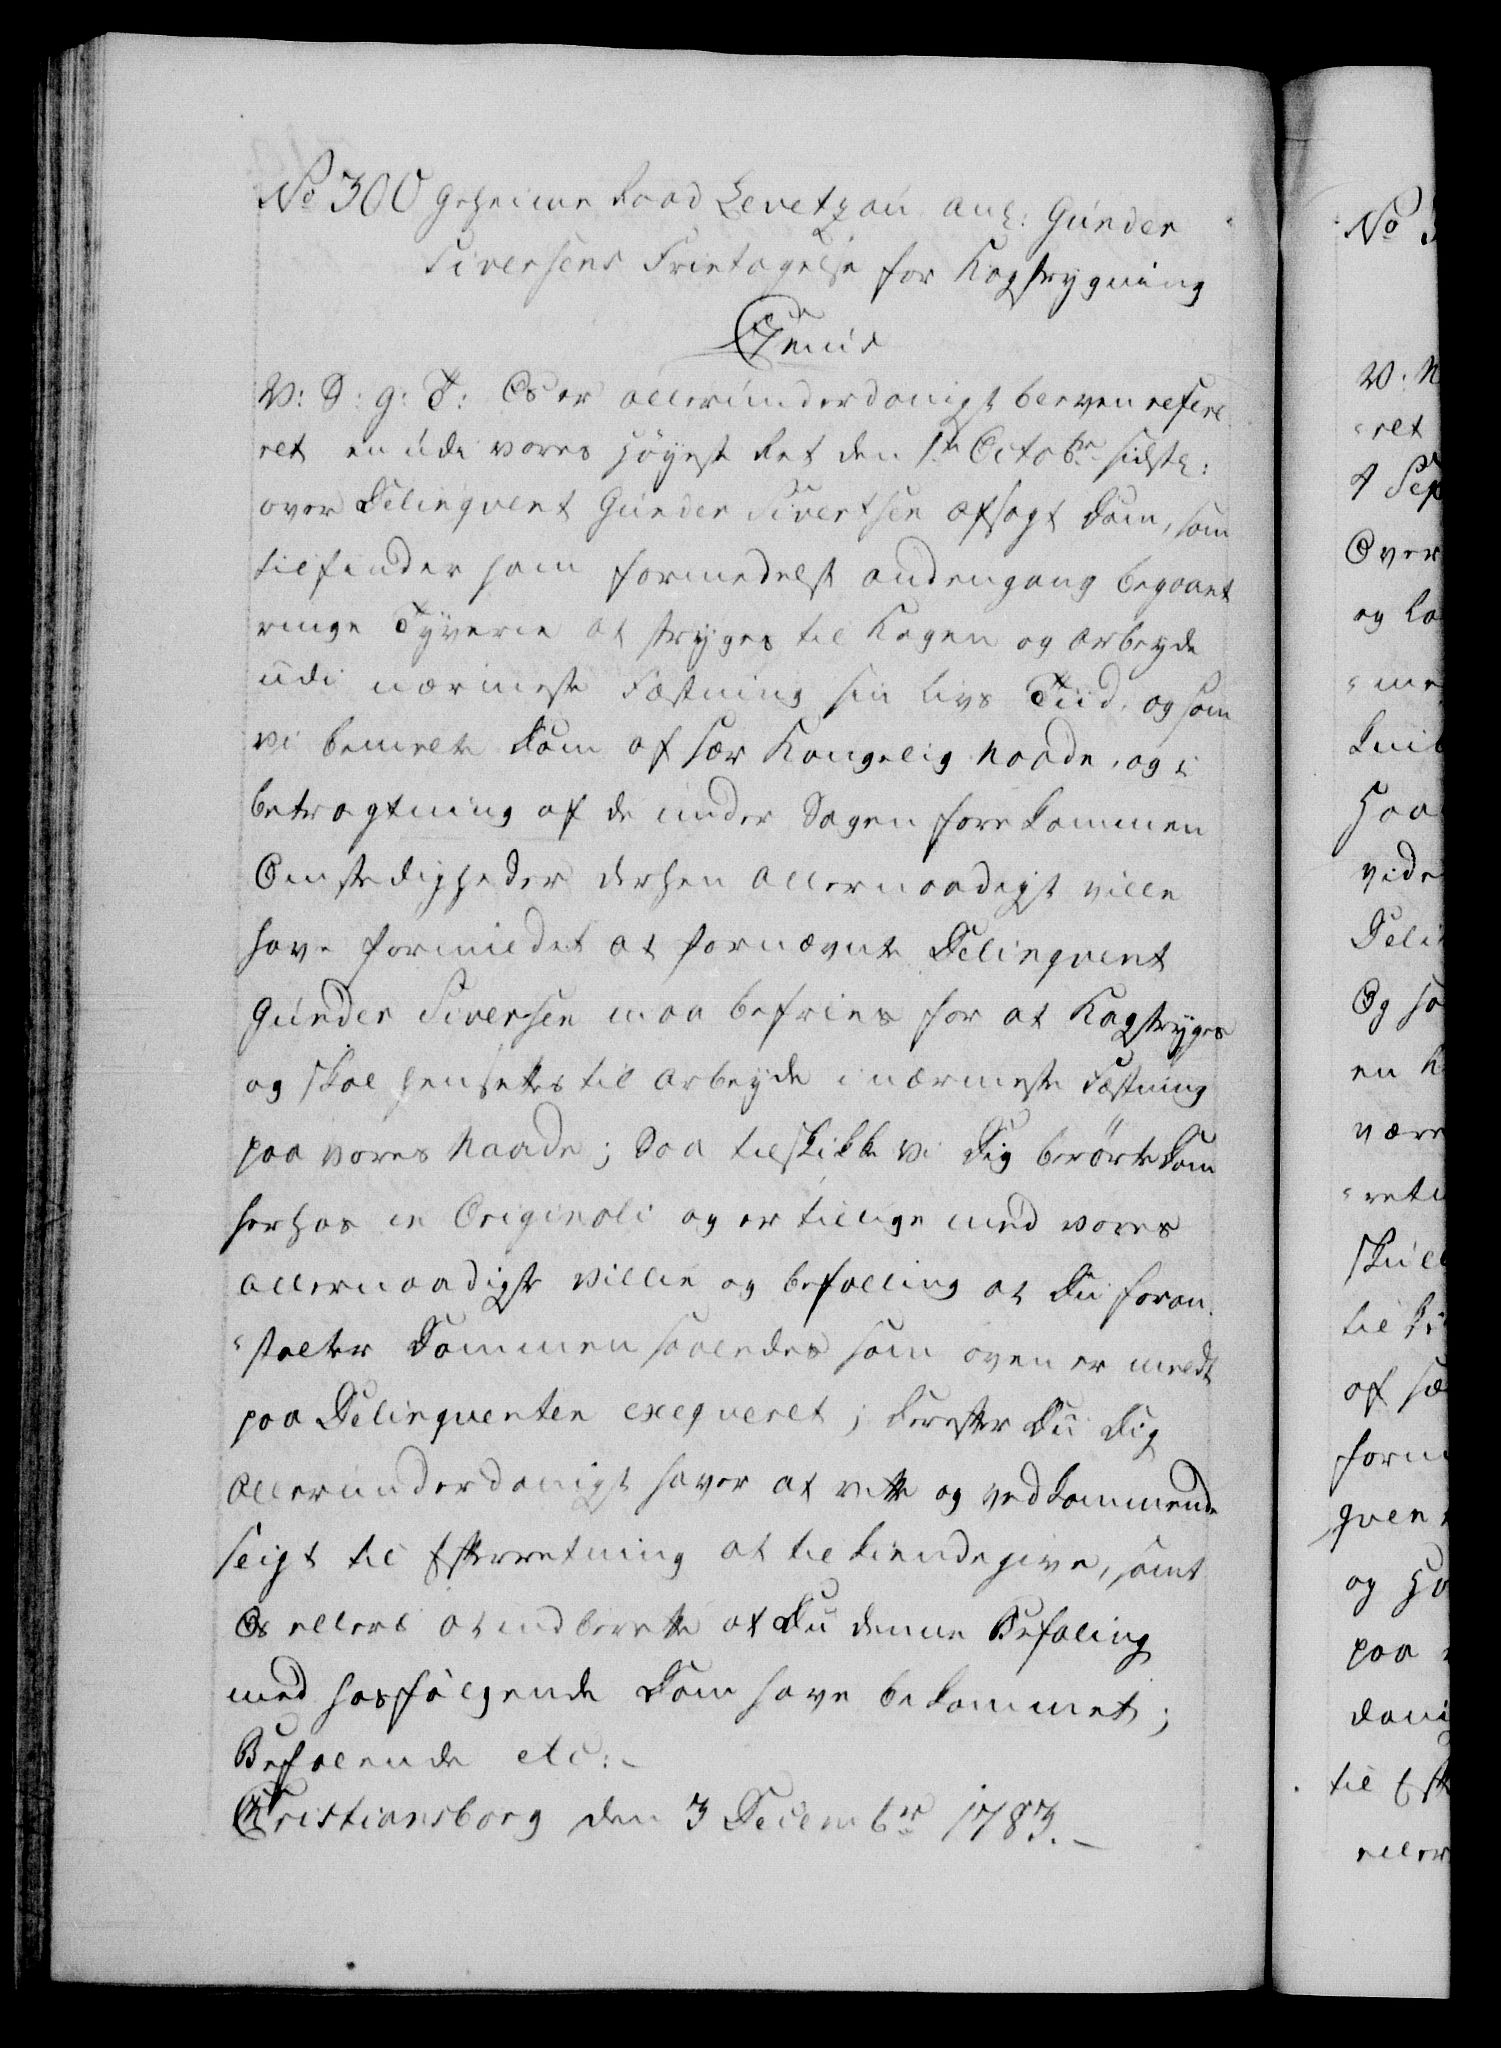 No 300 Geheime Raad Levetzau anl: Gunder
Siversens Frietagelse for Kagstrygning
Genus
V: S: g: T: Os er allerunderdanigst bleven refere
ret en udi vores Høyeste Ret den 1te Octobr sidstl:
over Delinqvent Gunder Sivertsen afsagt Dom, som
tilfinder ham formedelst andengang begaaet
ringe Tyverie at stryges til Kagen og arbeyde
udi nærmeste Fæstning sin livs Tiid, og som
vi bemelte Dom af sær Kongelig Naade, og i
betragtning af de under Sagen forekommen
Omstædigheder derhen allernaadigst ville
have formildet at fornævnte Delinqvent
Gunder Siversen maa befries for at Kagstryges
og skal hensættes til arbeyde i nærmeste Fæstning
paa vores Naade; Saa tilskikke vi Dig berørte Dom
herhos in Originali og er tillige med vores
allernaadigste villie og befalling at Du foran-
"stalter Dommen saaledes som oven er meldt
paa Delinqventen exeqveret; derefter Du Dig
allerunderdanigst haver at rette og vedkommende
seigt til Efterretning at tilkiendegive, samt
Os ellers at indberette at Du denne Befaling
med hosfølgende Dom have bekommet;
Befalende etc:
Christiansborg den 3 Decembr 1783.
No 3
V. N
"ret
4 Sep
Over
og la
"me
knib
Haa
vide
Deli
Og sa
en K
være
"retn
skull
til Ki
af sæ
form
qven
og Ho
paa
dani
til Eft
eller